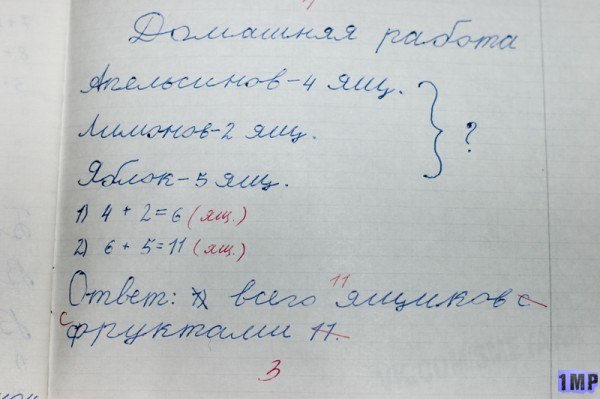 Домашняя работа
Апельсинов-4 ящ.
Лимонов-2 ящ.
?
Яблок-5 ящ.
1) 4 + 2 = 6 (ящ.)
2) 6 + 5 = 11 (ящ.)
11
Ответ: всего ящиков с
с фруктами 11.
3
1MP